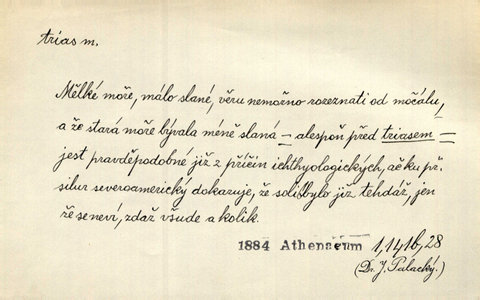 trias m.
Mělké moře, málo slané, věru nemožno rozeznati od močálu,
a že stará moře bývala méně slaná – alespoň před triasem –
jest pravděpodobné již z příčin ichthyologických, ač ku př.
silur severoamerický dokazuje, že soli bylo již tehdáž, jen
že se neví, zdaž všude a kolik.
1884 Athenaeum 1, 141b, 28
(Dr. J. Palacký.)